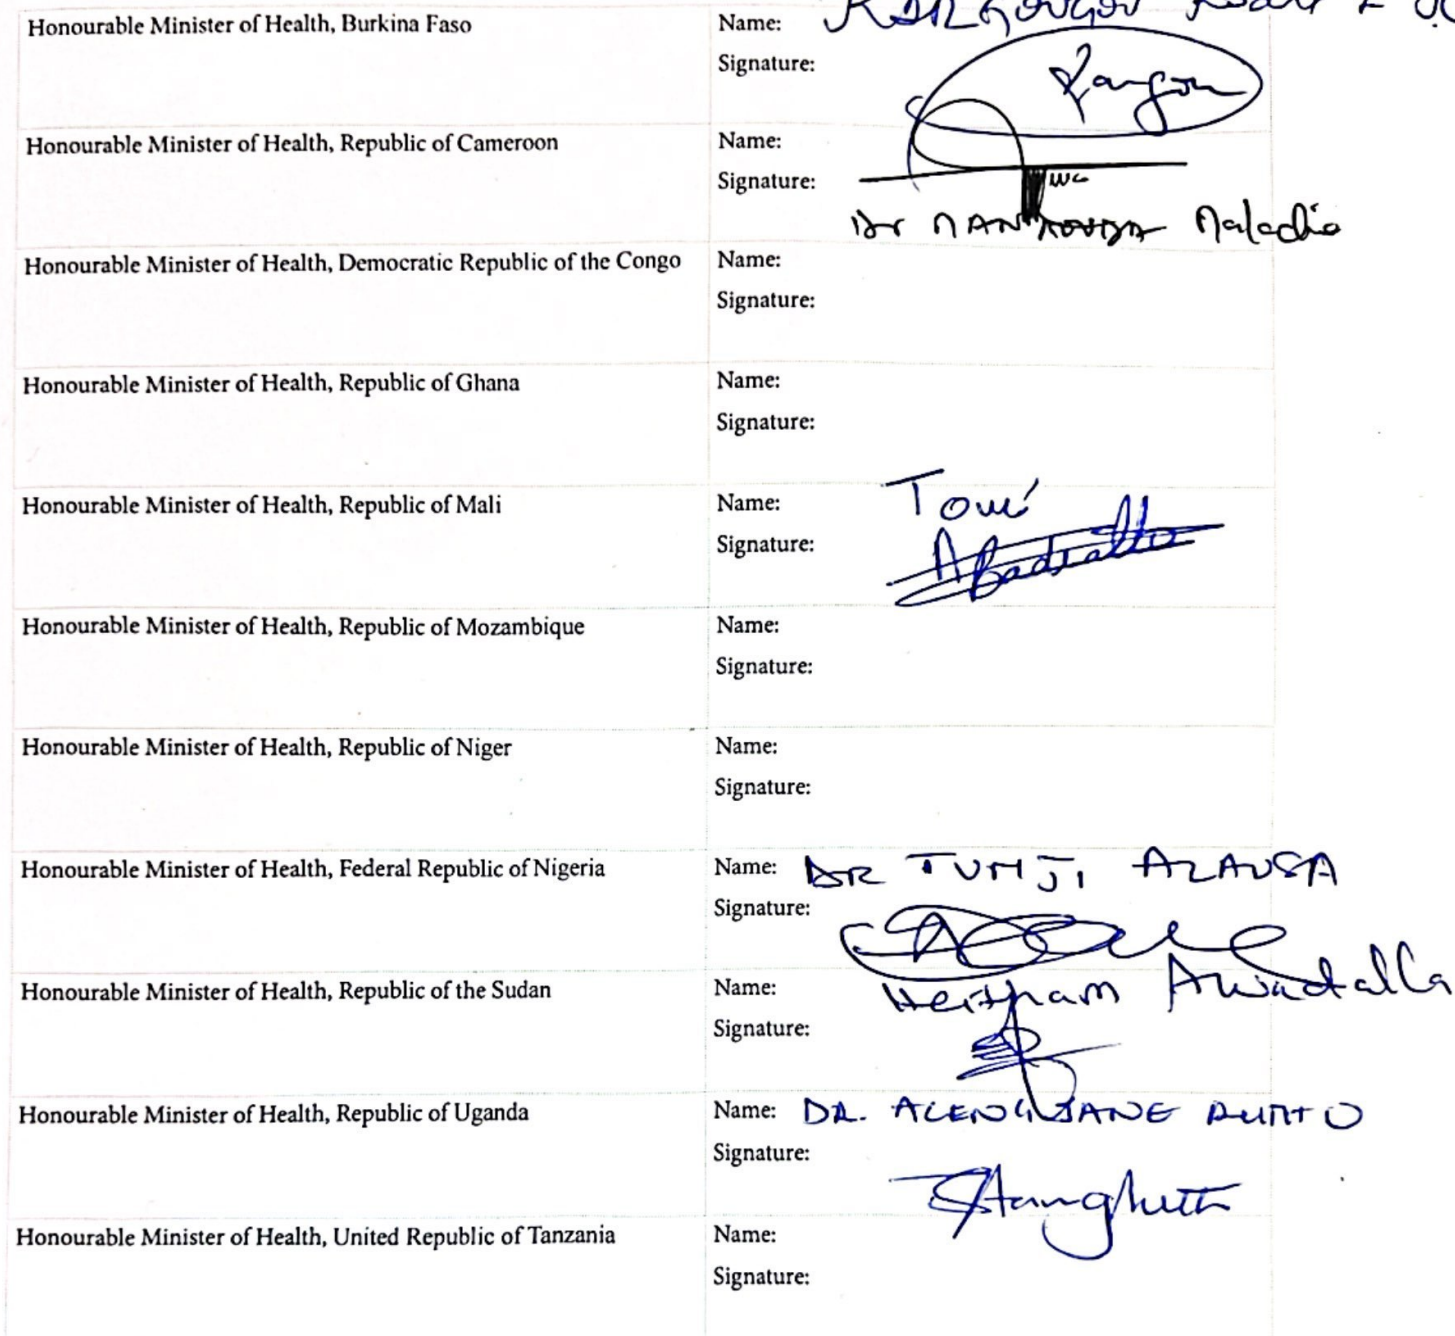 Honourable Minister of Health, Burkina Faso
Name:
Signature:
Honourable Minister of Health, Republic of Cameroon
Name:
Signature:
Dr MANAOUDA Malachie
Honourable Minister of Health, Democratic Republic of the Congo
Name:
Signature:
Honourable Minister of Health, Republic of Ghana
Name:
Signature:
Honourable Minister of Health, Republic of Mali
Name:
Signature:
Honourable Minister of Health, Republic of Mozambique
Name:
Signature:
Honourable Minister of Health, Republic of Niger
Name:
Signature:
Honourable Minister of Health, Federal Republic of Nigeria
Name: DR TUNJI ALAUSA
Signature:
Honourable Minister of Health, Republic of the Sudan
Name: Heitham Awadalla
Signature:
Honourable Minister of Health, Republic of Uganda
Name: DR. ACENG JANE RUTH
Signature:
Honourable Minister of Health, United Republic of Tanzania
Name:
Signature: